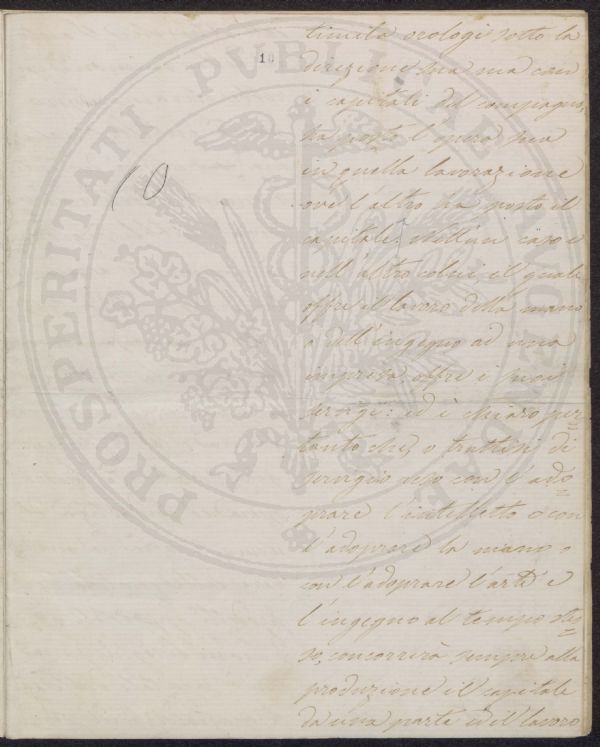 PROSPERITATI PVBLICAE AVGENDAE
10
10
timila orologi sotto la
direzione sua ma con
i capitali del compagno,
ha posto l'opera sua
in quella lavorazione
ove l'altro ha posto il
capitale. Nell'un caso e
nell'altro colui, il quale
offre il lavoro della mano
o dell'ingegno ad una
impresa offre i suoi
servigi: ed è chiaro per=
tanto che, o trattisi di
servigio reso con l'ado=
prare l'intelletto o con
l'adoprare la mano o
con l'adoprare l'arte e
l'ingegno al tempo stes=
so, concorrerà sempre alla
produzione il capitale
da una parte ed il lavoro